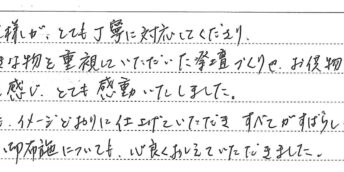 様しが、とても丁寧に対応してくださり、
な物を重視していただいた祭壇づくりや、お供物
感じ、とても感動いたしました。
、イメージどおりに仕上げていただき すべてがすばらし
御布施についても、心良くおしえていただきました。